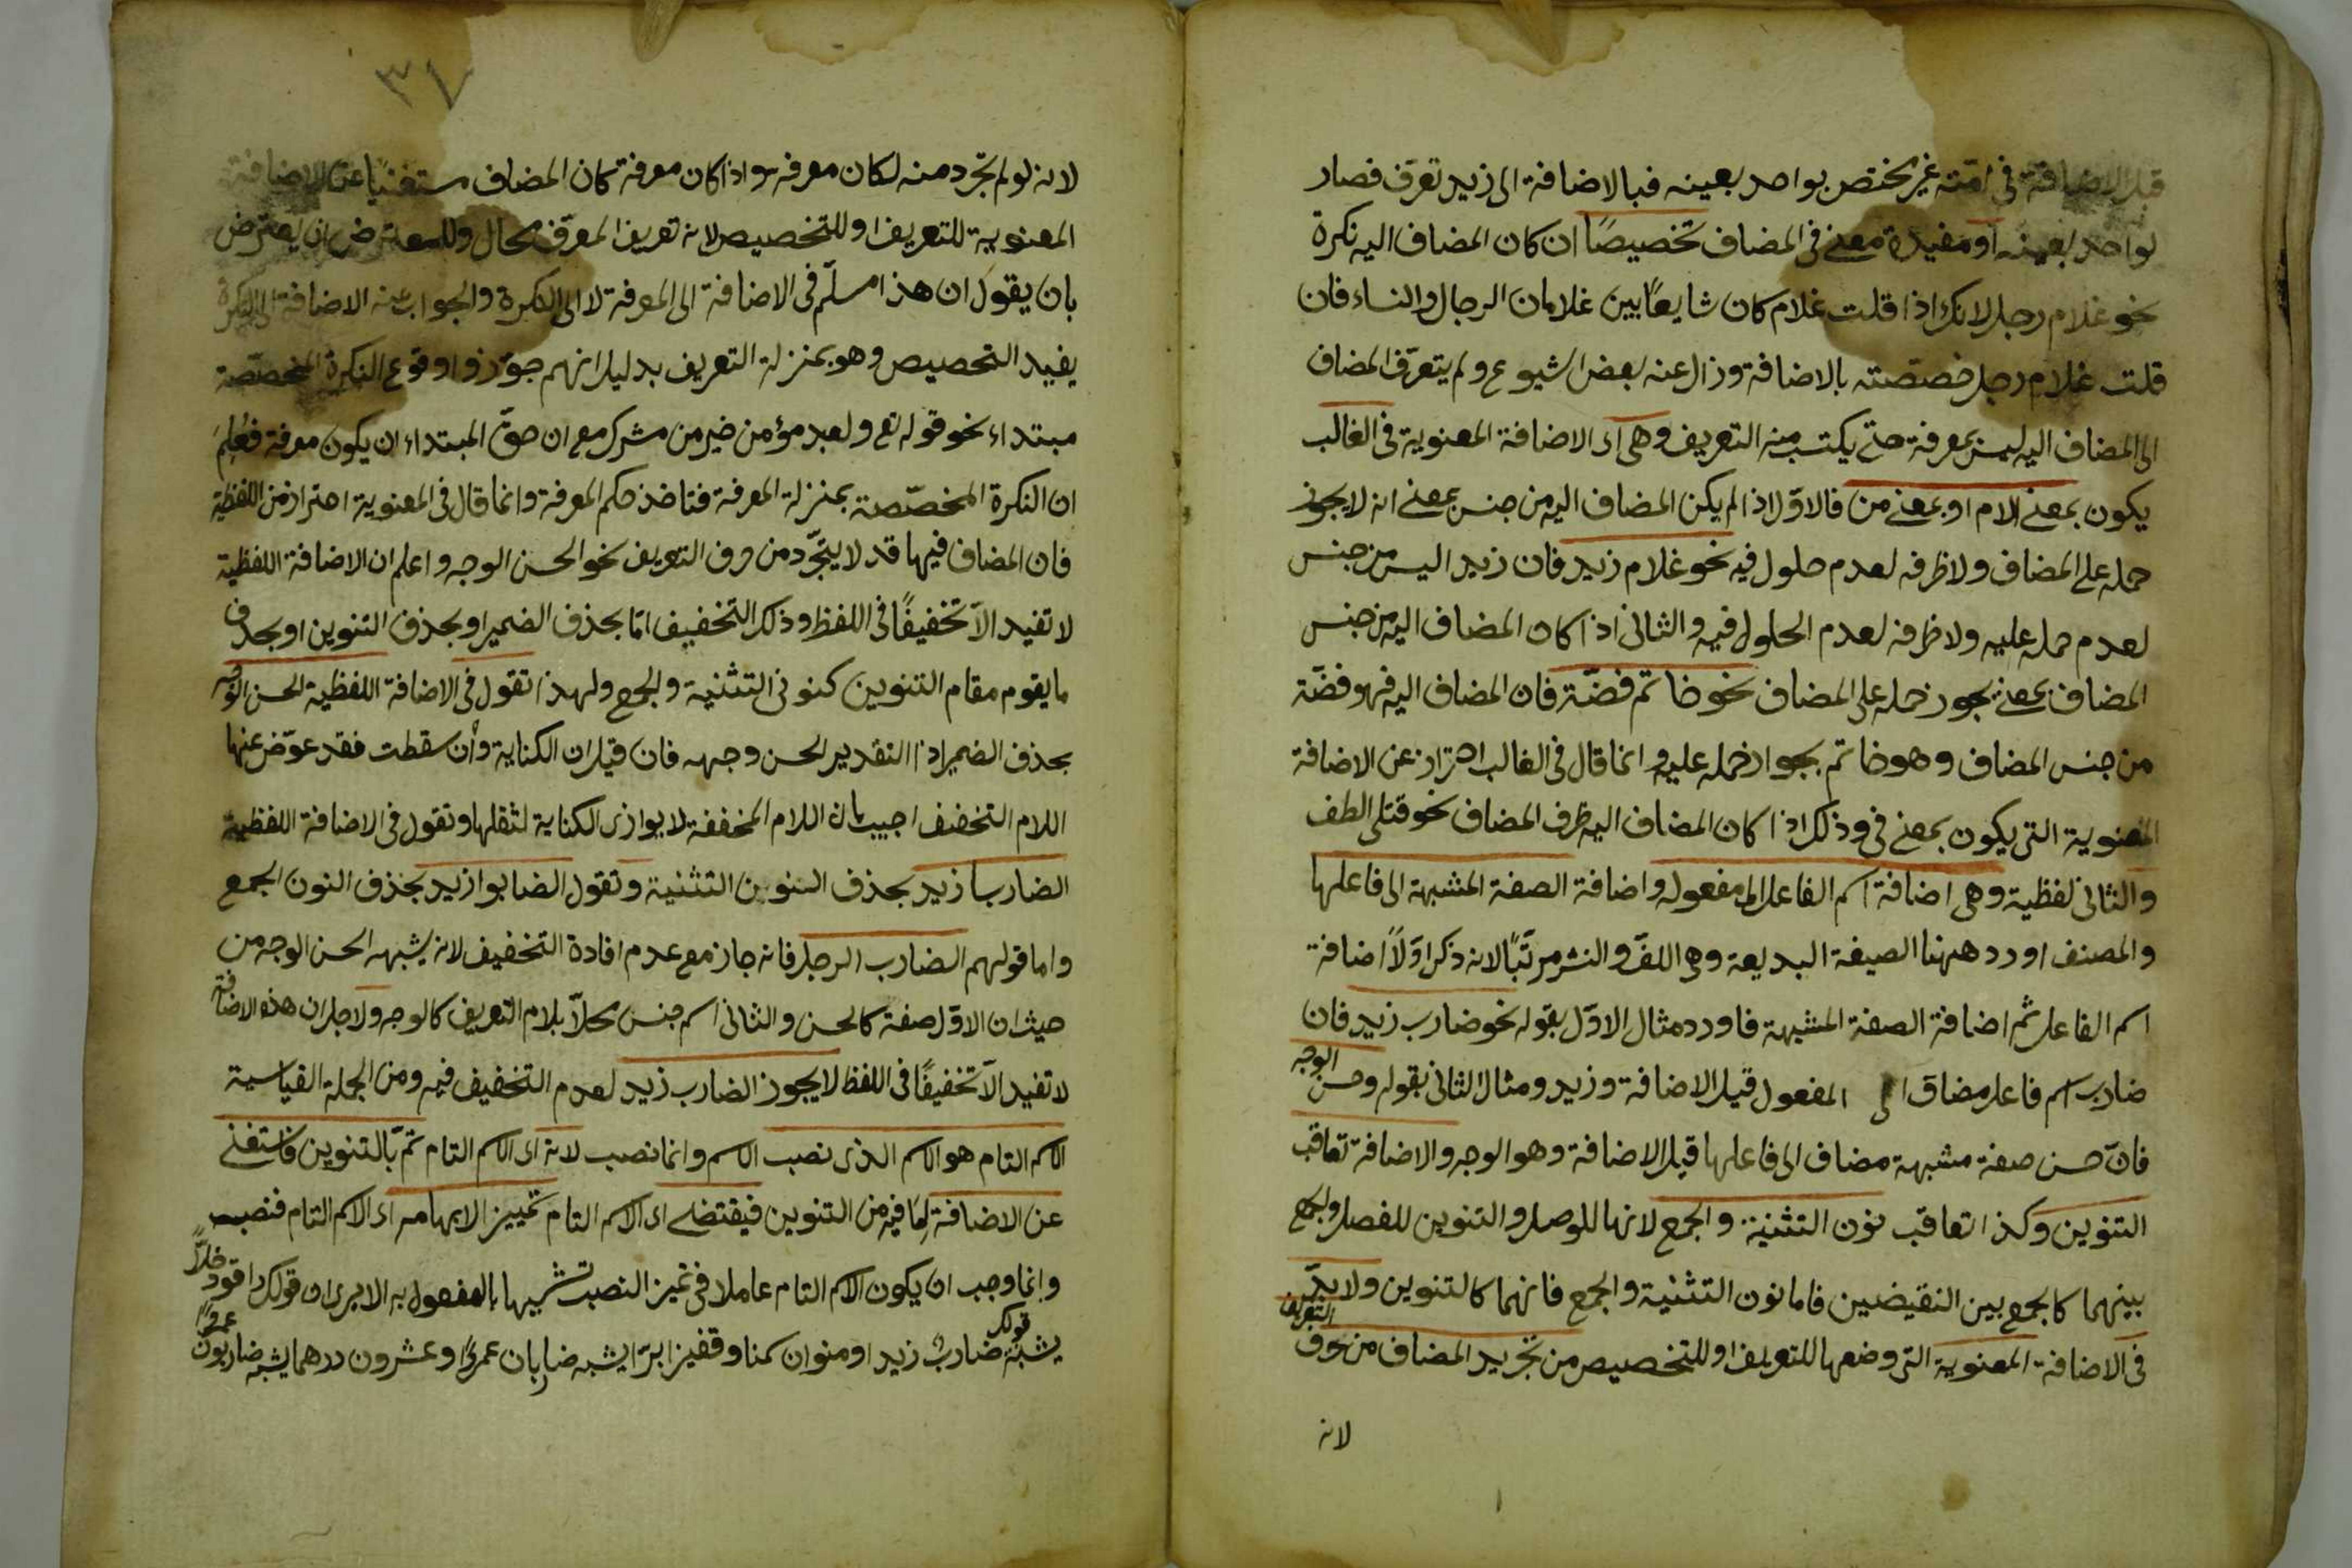 قبل الاضافة فى امّته غير مختص بواحد بعينه فبالاضافة الى زيد تعرّف فصار
لواحد بعينه او مفيدة معنى فى المضاف تخصيصًا ان كان المضاف اليه نكرة
نحو غلام رجل لانك اذا قلت غلام كان شايعًا بين غلامان الرجال والنساء فان
قلت غلام رجل خصصّته بالاضافة وزال عنه بعض الشيوع ولم يتعرّف المضاف
الى المضاف اليه ليس بمعرفة حتى يكتسب منه التعريف وهى اى الاضافة المعنوية فى الغالب
يكون بمعنى اللام او بمعنى من فالاوّل اذا لم يكن المضاف اليه من جنس بمعنى انه لا يجوز
حمله على المضاف ولا ظرفه لعدم حلول فيه نحو غلام زيد فان زيد اليس من جنس
لعدم حمله عليه ولا ظرفه لعدم الحلول فيه والثانى اذا كان المضاف اليه من جنس
المضاف بمعنى يجوز حمله على المضاف نحو خاتم فضّة فان المضاف اليه فهو فضّة
من جنس المضاف وهو خاتم بجواز حمله عليه وانما قال فى الغالب احتراز عن الاضافة
المعنوية التى يكون بمعنى فى وذلك اذا كان المضاف اليه ظرف المضاف نحو قتلى الطف
والثانى لفظية وهى اضافة اسم الفاعل الى مفعوله واضافة الصفة المشبهة الى فاعلها
والمصنف اورد ههنا الصيغة البديعة وهى اللفّ والنشر مرتّبًا لانه ذكر اوّلًا اضافة
اسم الفاعل ثم اضافة الصفة المشبهة فاورد مثال الاوّل بقوله نحو ضارب زيد فان
ضارب اسم فاعل مضاف الى المفعول قبل الاضافة وزيد ومثال الثانى بقوله وحسن الوجه
فانّ حسن صفة مشبهة مضاف الى فاعلها قبل الاضافة وهو الوجه والاضافة تعاقب
التنوين وكذا تعاقب نون التثنية والجمع لانها للوصل والتنوين للفصل والجمع
بينهما كالجمع بين النقيضين فاما نون التثنية والجمع فانهما كالتنوين ولا بدّ
فى الاضافة المعنوية التى وضعها للتعريف او للتخصيص من تجريد المضاف من حرف التعريف
لانه
٣٧
لانه لو لم تجرّد منه لكان معرفة واذا كان معرفة كان المضاف مستغنيًا عن الاضافة
المعنوية للتعريف او للتخصيص لانه تعريف المعرّف محال وللمعترض ان يعترض
بان يقول ان هذا مسلّم فى الاضافة الى المعرفة لا الى النكرة والجواب عنه الاضافة الى النكرة
يفيد التخصيص وهو بمنزلة التعريف بدليل انهم جوّزوا وقوع النكرة المخصّصة
مبتداء نحو قوله تع ولعبد مؤمن خير من مشرك مع ان حقّ المبتداء ان يكون معرفة فعُلِمَ
ان النكرة المخصّصة بمنزلة المعرفة فتاخذ حكم المعرفة وانما قال فى المعنوية احتراز من اللفظية
فان المضاف فيها قد لا يتجرّد من حرف التعريف نحو الحسن الوجه واعلم ان الاضافة اللفظية
لا تفيد الّا تخفيفًا فى اللفظ وذلك التخفيف امّا بحذف الضمير او بحذف التنوين او بحذف
ما يقوم مقام التنوين كنونى التثنية والجمع ولهذا تقول فى الاضافة اللفظية الحسن الوجه
بحذف الضمير اذ التقدير الحسن وجهه فان قيل ان الكناية وأن سقطت فقد عوّض عنها
اللام التخفيف اجيب بان اللام المخففة لا يوازى الكناية لثقلها وتقول فى الاضافة اللفظية
الضاربا زيد بحذف التنوين التثنية وتقول الضابوا زيد بحذف النون الجمع
واما قولهم الضارب الرجل فانه جاز مع عدم افادة التخفيف لانه يشبهه الحسن الوجه من
حيث ان الاوّل صفة كالحسن والثانى اسم جنس محلّا بلام التعريف كالوجه ولاجل ان هذه الاضافة
لا تفيد الّا تخفيفًا فى اللفظ لا يجوز الضارب زيد لعدم التخفيف فيه ومن الجملة القياسية
الاسم التام هو الاسم الذى نصب الاسم وانما نصب لانه اى الاسم التام تمّ بالتنوين فاستغنى
عن الاضافة لِمَا فيه من التنوين فيقتضى اى الاسم التام تمييز الابهامه اى الاسم التام فنصب
وانما وجب ان يكون الاسم التام عاملا فى تميز النصب تشبيها بالمفعول به الا يرى ان قولك راقود خلًّا
يشبه قولك ضاربٌ زيدا ومنوان سمنا وقفيزا برّا يشبه ضاربان عمرًا وعشرون درهما يشبه ضاربون عمرًا